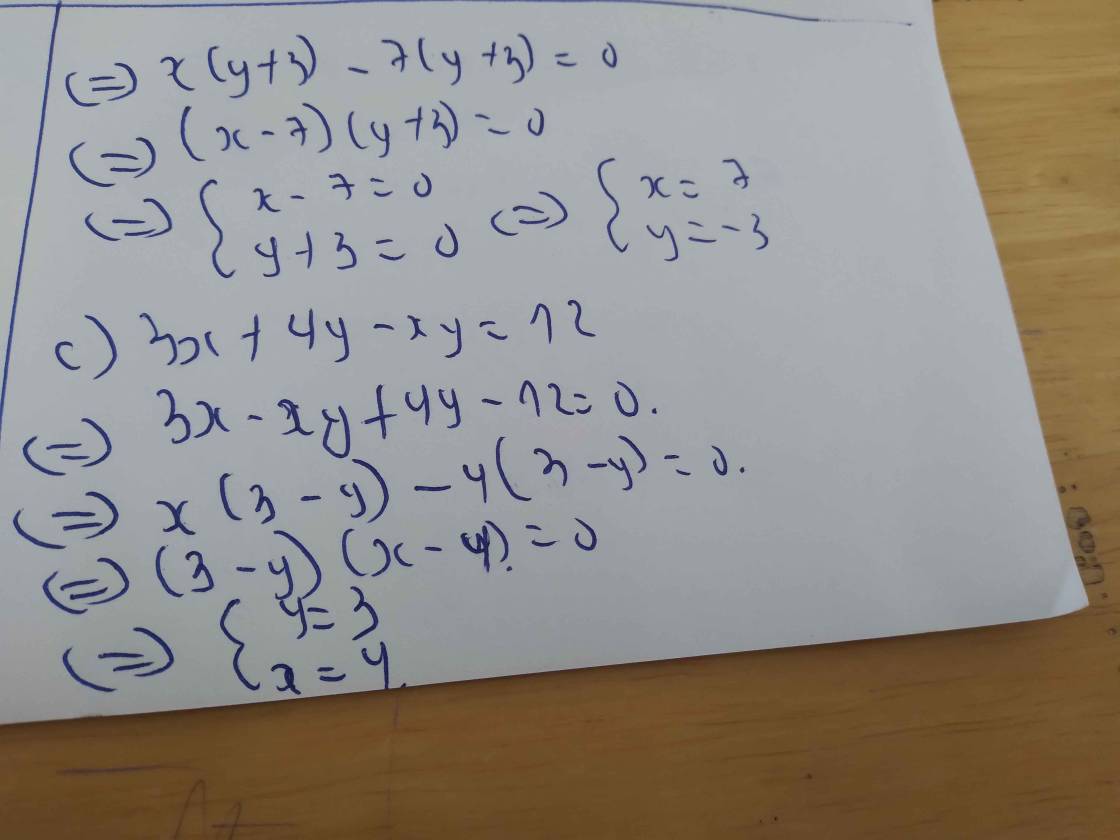 (=) x(y+3) - 7(y+3) = 0
(=) (x-7)(y+3) = 0
(=) { x - 7 = 0 (=) { x = 7
y + 3 = 0 y = -3
c) 3x + 4y - xy = 12
(=) 3x - xy + 4y - 12 = 0.
(=) x(3 - y) - 4(3 - y) = 0.
(=) (3 - y)(x - 4) = 0
(=) { y = 3
x = 4.